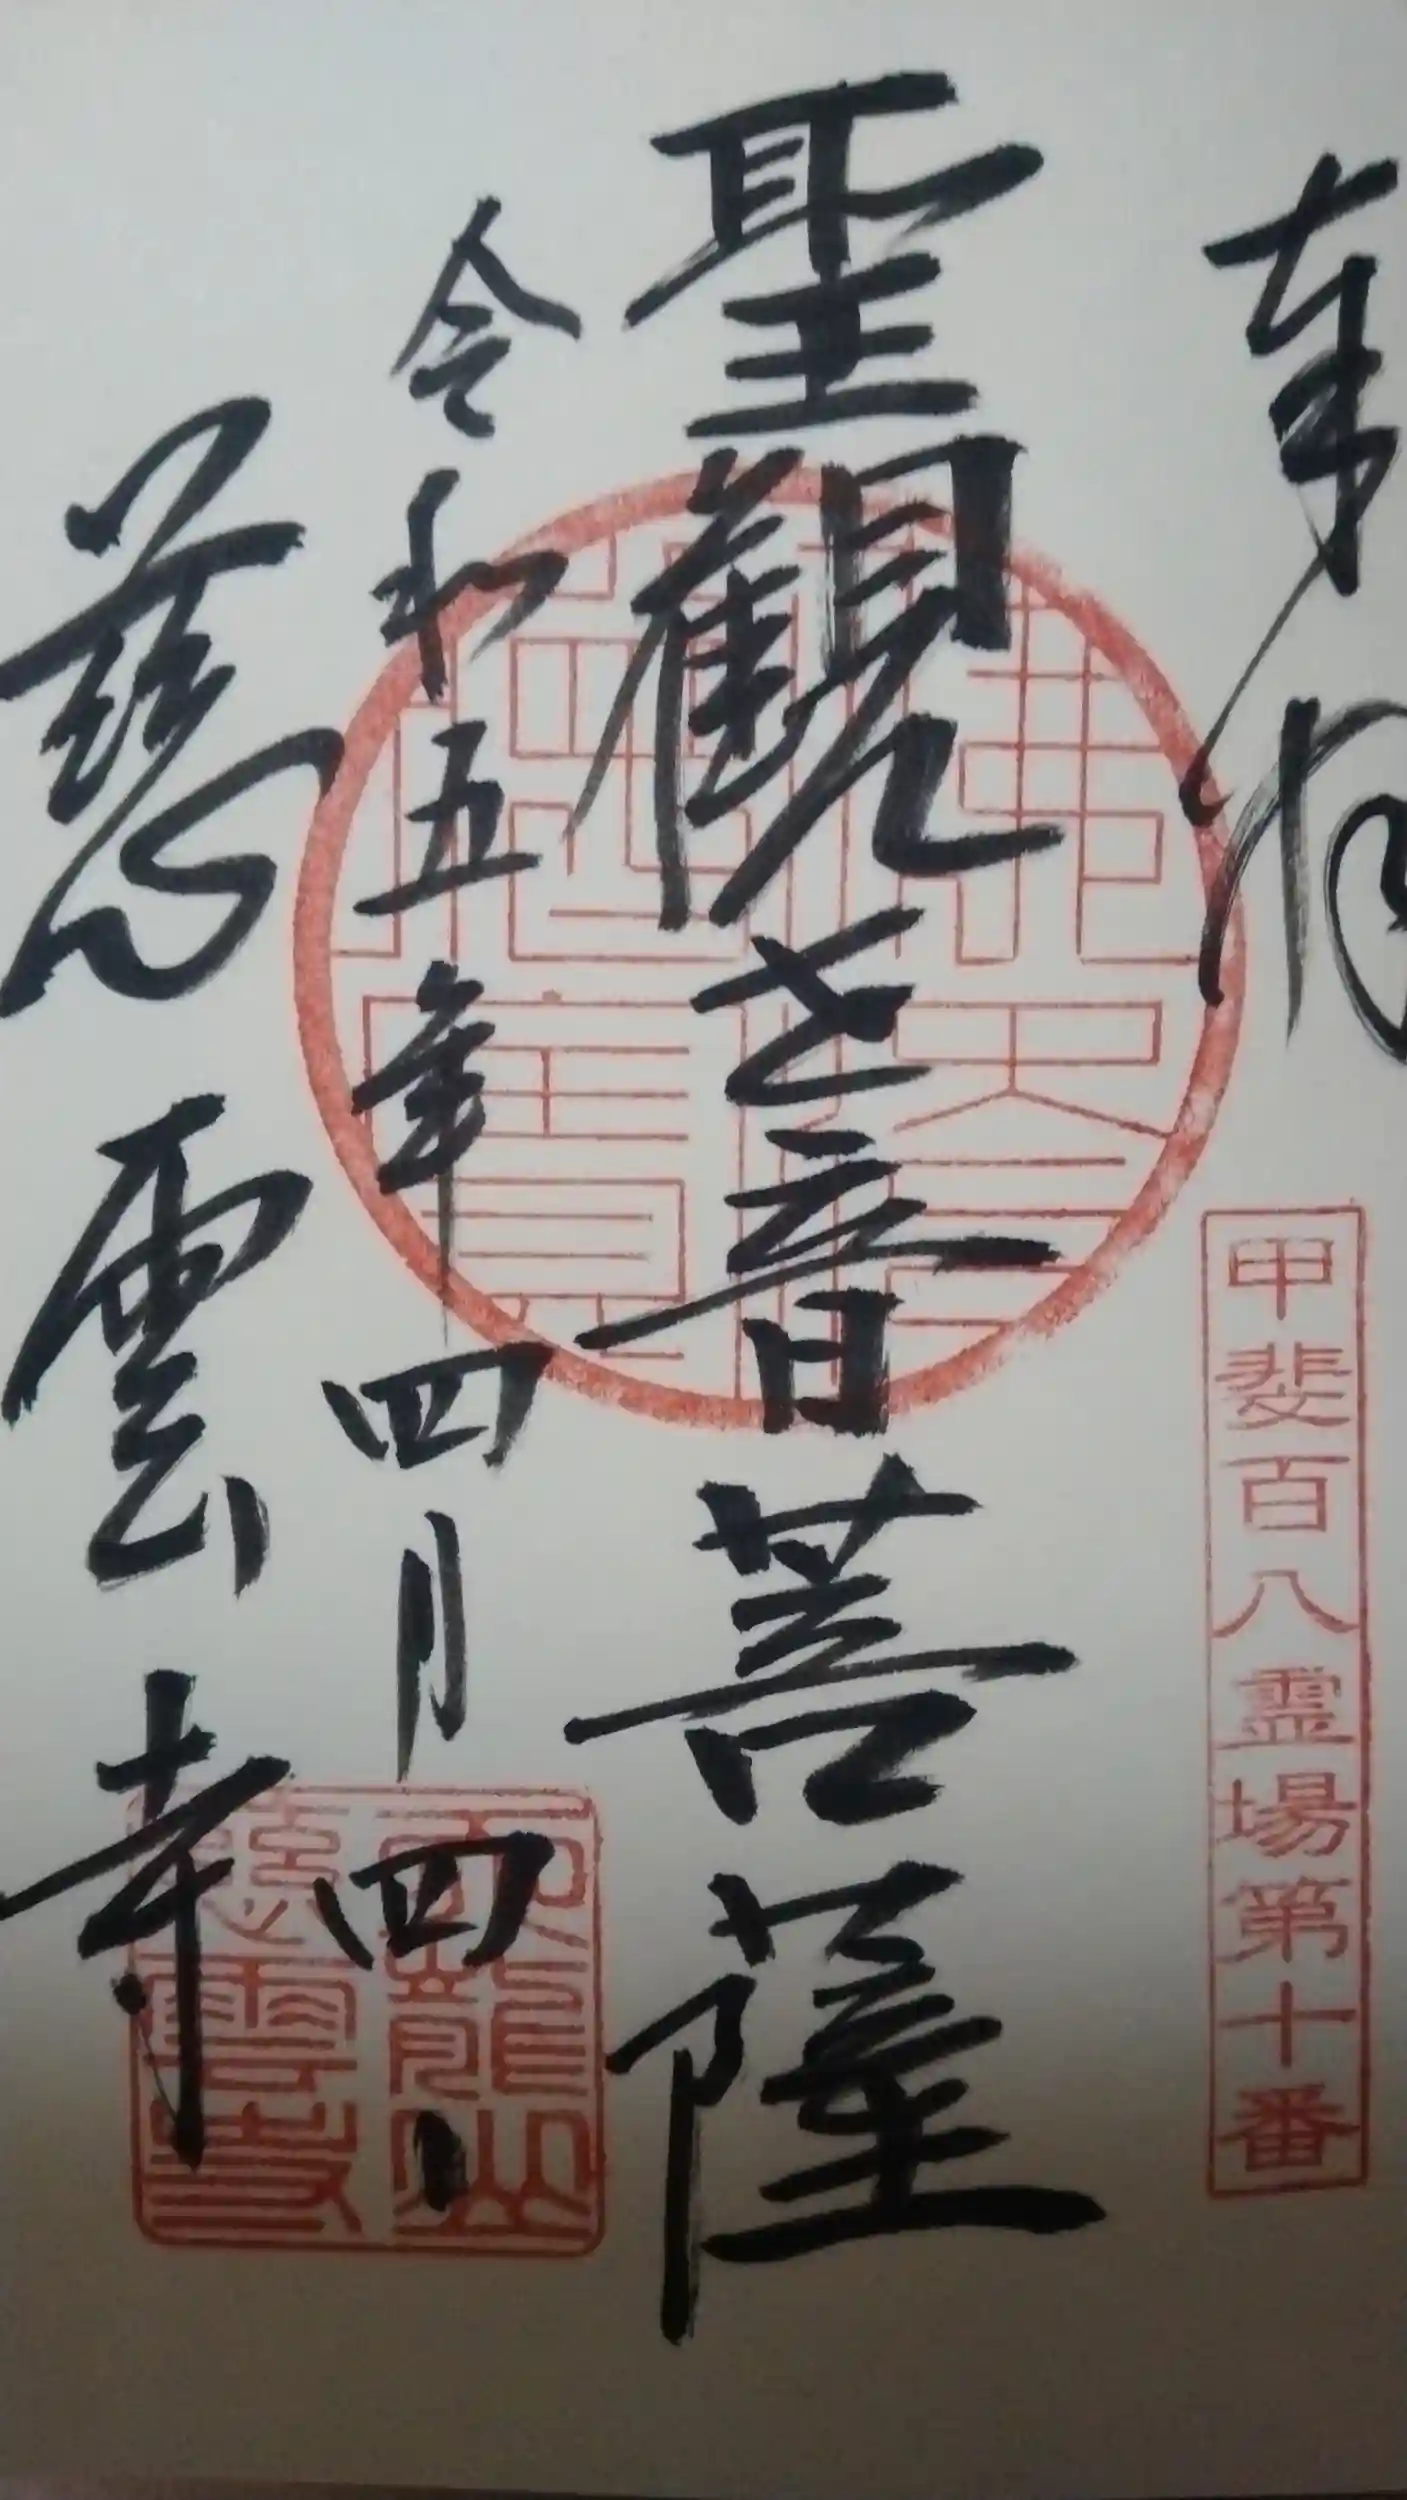 奉拝
甲斐百八霊場第十番
聖観世音菩薩
令和五年四月四日
慈雲寺
天龍山
慈雲寺
佛法僧寶